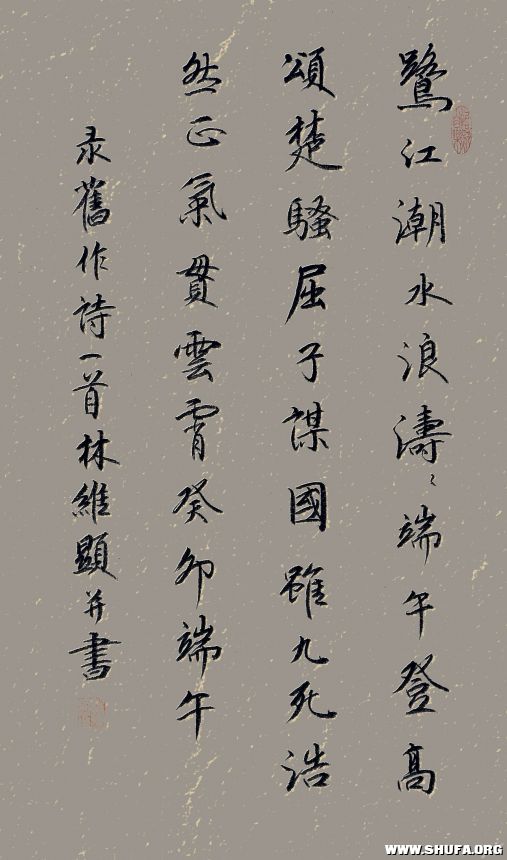 鷺江潮水浪濤〻端午登高
頌楚騷屈子謀國雖九死浩
然正氣貫雲霄癸卯端午
录舊作詩一首林維顯并書
WWW.SHUFA.ORG